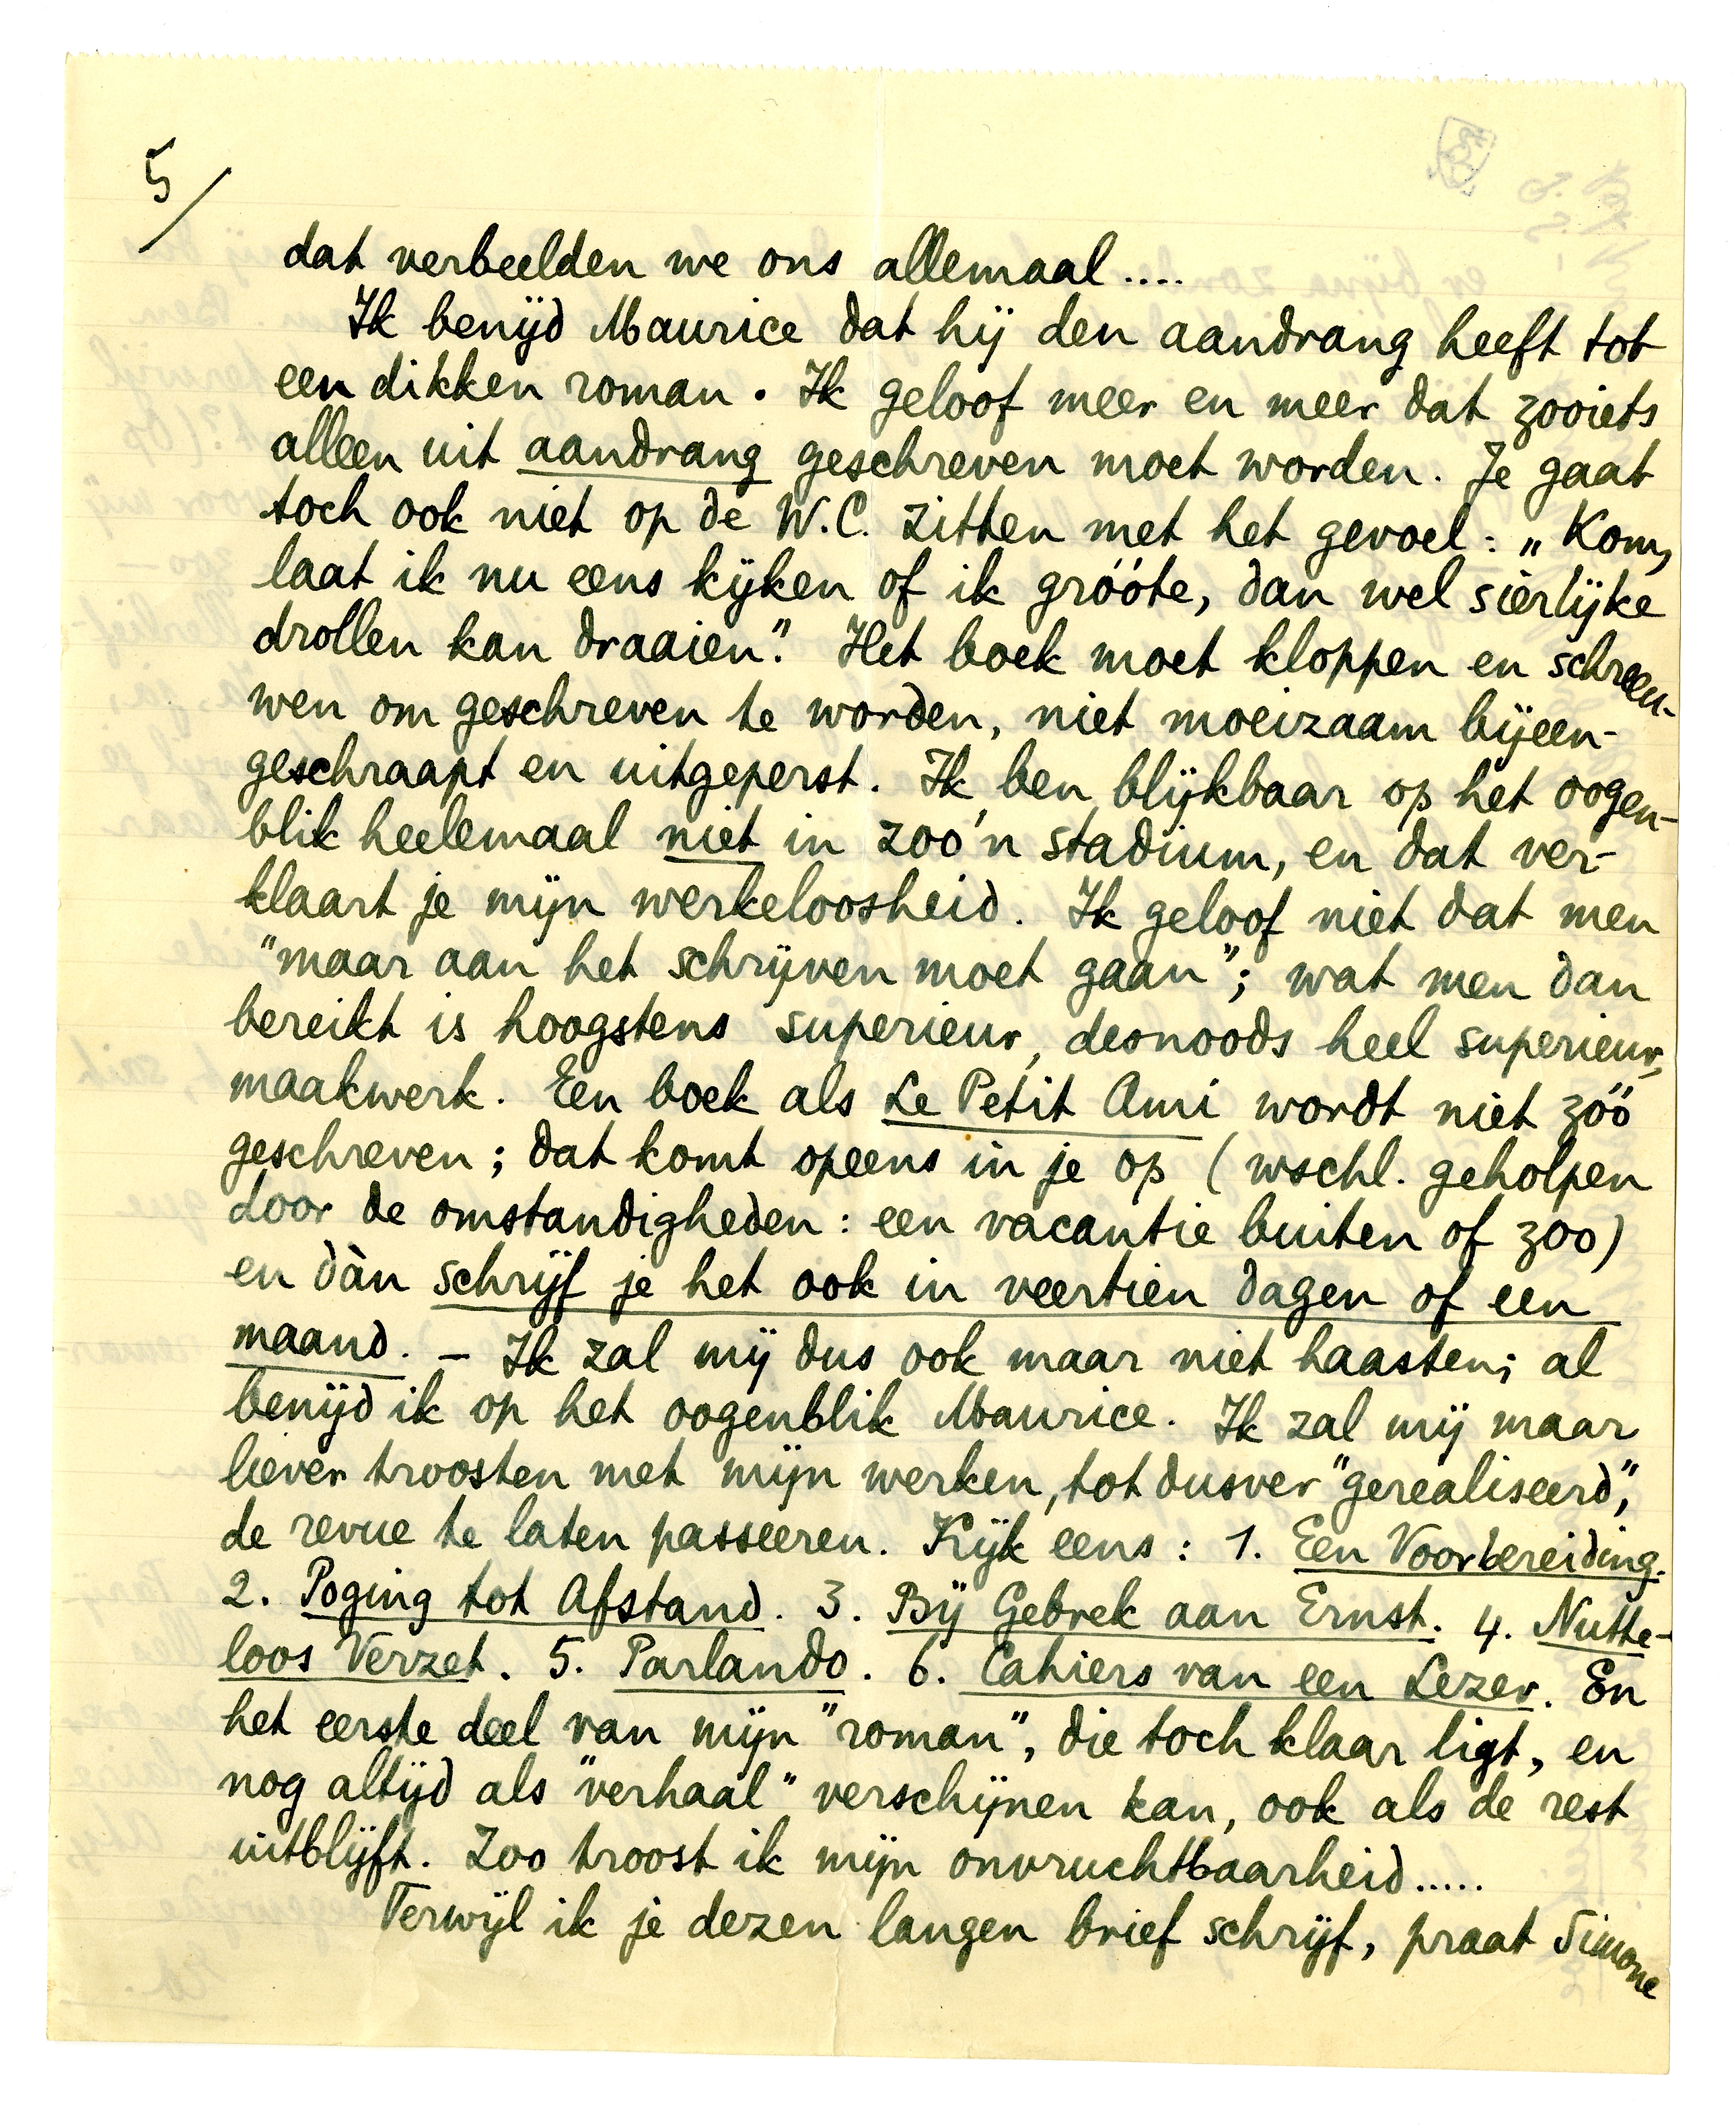 5/
dat verbeelden we ons allemaal....
Ik benijd Maurice dat hij den aandrang heeft tot
een dikken roman. Ik geloof meer en meer dat zooiets
alleen uit aandrang geschreven moet worden. Je gaat
toch ook niet op de W.C. zitten met het gevoel: „Kom,
laat ik nu eens kijken of ik gróóte, dan wel sierlijke
drollen kan draaien." Het boek moet kloppen en schreeu-
wen om geschreven te worden, niet moeizaam bijeen-
geschraapt en uitgeperst. Ik ben blijkbaar op het oogen-
blik heelemaal niet in zoo'n stadium, en dat ver-
klaart je mijn werkeloosheid. Ik geloof niet dat men
"maar aan het schrijven moet gaan"; wat men dan
bereikt is hoogstens superieur, desnoods heel superieur,
maakwerk. Een boek als Le Petit Ami wordt niet zóó
geschreven; dat komt opeens in je op (wschl. geholpen
door de omstandigheden: een vacantie buiten of zoo)
en dàn schrijf je het ook in veertien dagen of een
maand. – Ik zal mij dus ook maar niet haasten; al
benijd ik op het oogenblik Maurice. Ik zal mij maar
liever troosten met mijn werken, tot dusver "gerealiseerd",
de revue te laten passeeren. Kijk eens: 1. Een Voorbereiding.
2. Poging tot Afstand. 3. Bij Gebrek aan Ernst. 4. Nutte-
loos Verzet. 5. Parlando. 6. Cahiers van een Lezer. En
het eerste deel van mijn "roman", die toch klaar ligt, en
nog altijd als "verhaal" verschijnen kan, ook als de rest
uitblijft. Zoo troost ik mijn onvruchtbaarheid.....
Terwijl ik je dezen langen brief schrijf, praat Simone